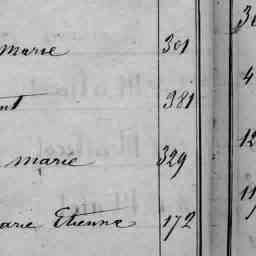 marie 301
nt 381
marie 329
arie Etienne 172
3
4
12
11